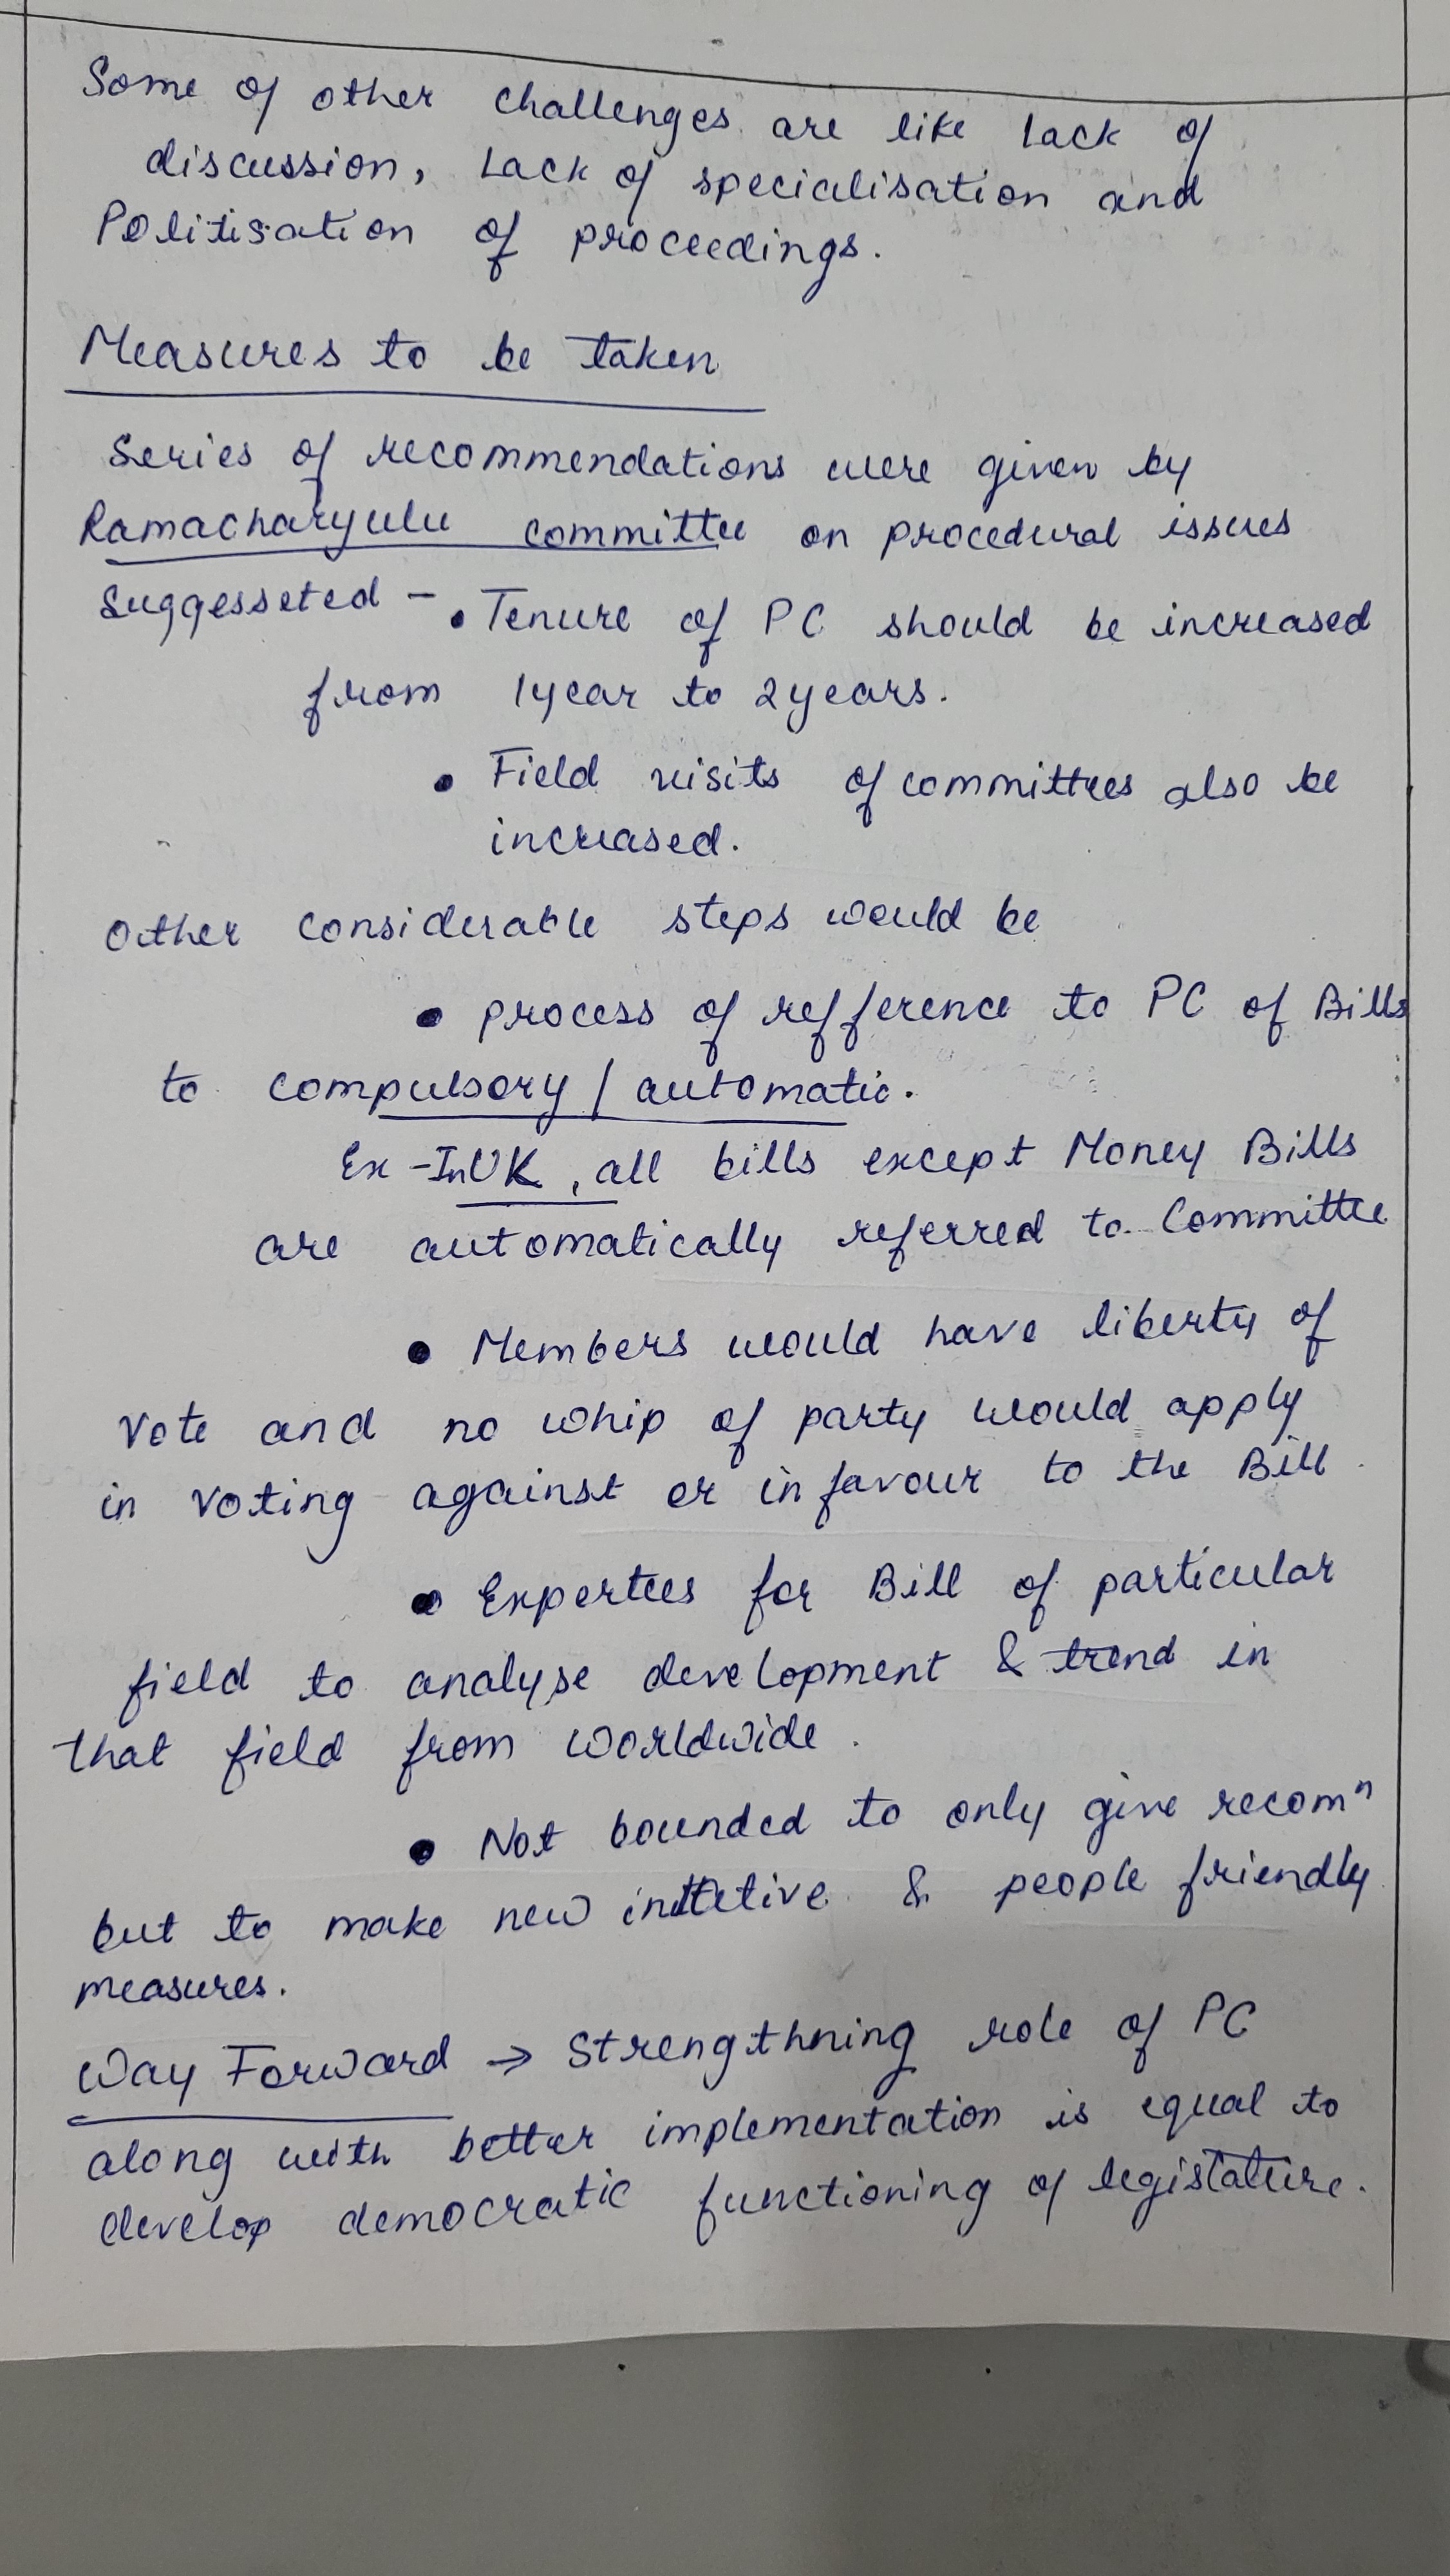 Some of other challenges are like lack of
discussion, Lack of specialisation and
Politisation of proceedings.
Measures to be taken
Series of recommendations were given by
Ramacharyulu committee on procedural issues
Suggesseted - • Tenure of PC should be increased
from 1year to 2years.
• Field visits of committees also be
increased.
Other considerable steps would be
• process of refference to PC of Bills
to compulsory / automatic.
Ex - In UK, all bills except Money Bills
are automatically referred to Committee
• Members would have liberty of
vote and no whip of party would apply
in voting against or in favour to the Bill.
• Expertees for Bill of particular
field to analyse development & trend in
that field from worldwide.
• Not bounded to only give recomⁿ
but to make new inttetive & people friendly
measures.
Way Forward → Strengthning role of PC
along with better implementation is equal to
develop democratic functioning of legistature.